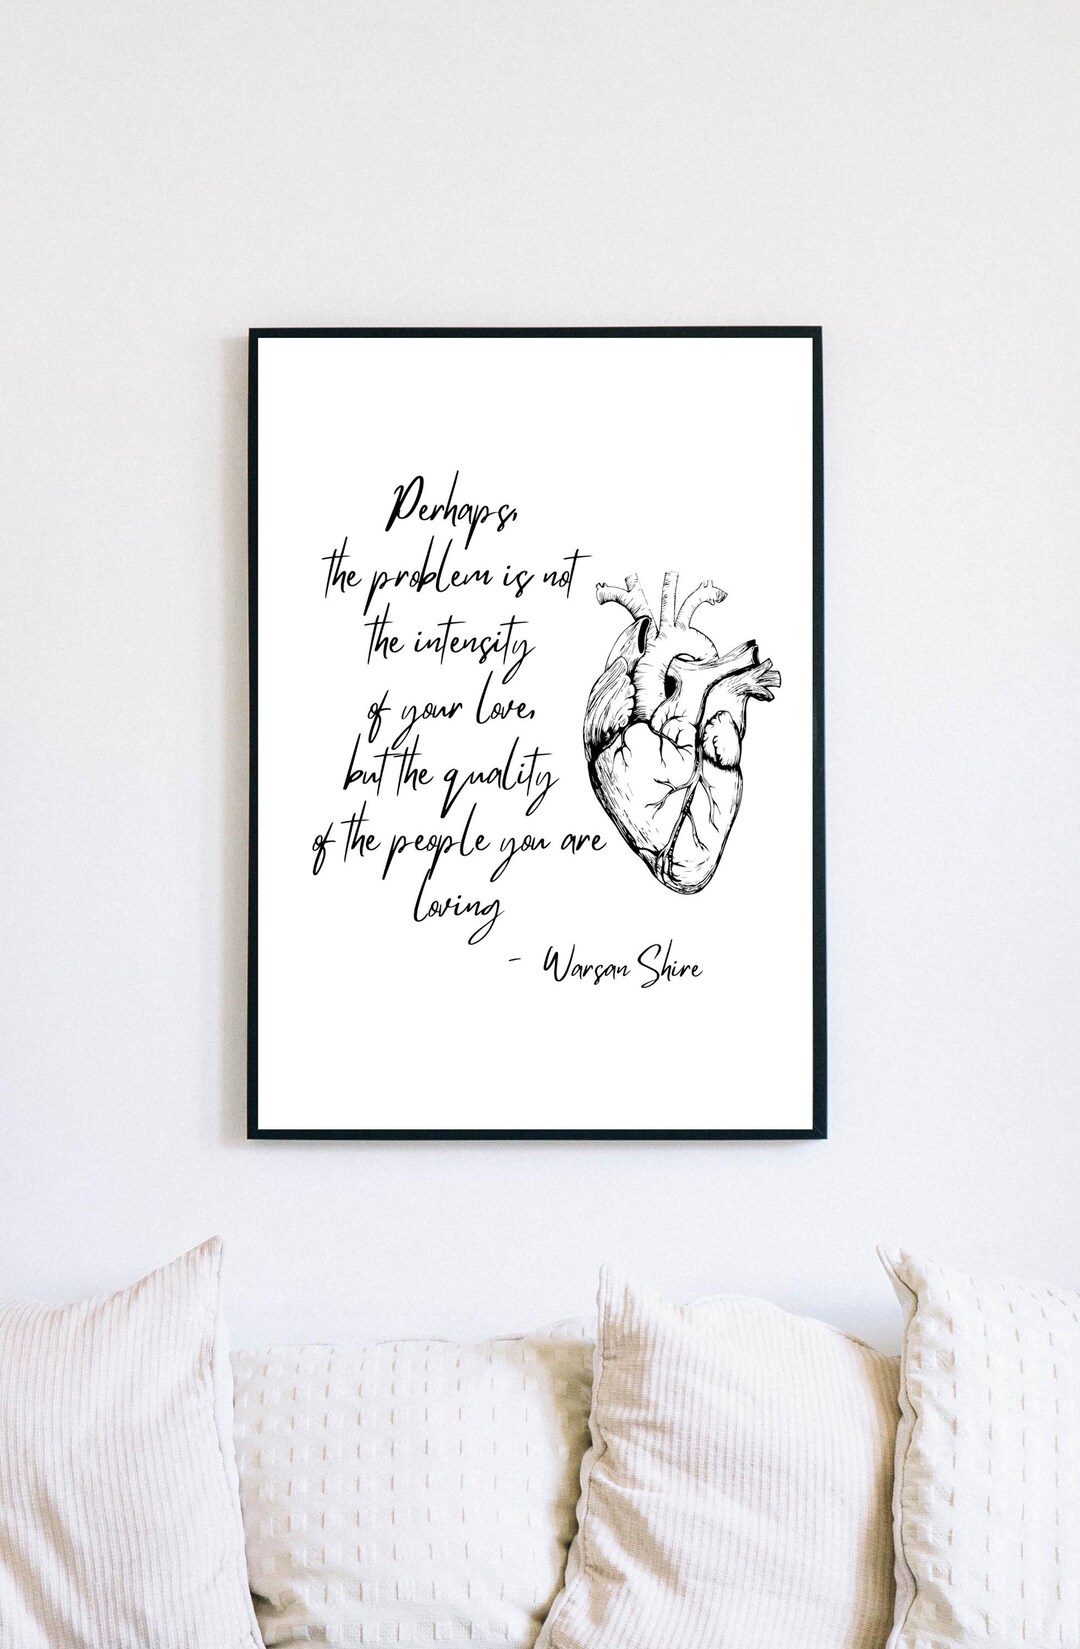 Perhaps,
the problem is not
the intensity
of your love,
but the quality
of the people you are
loving
- Warsan Shire